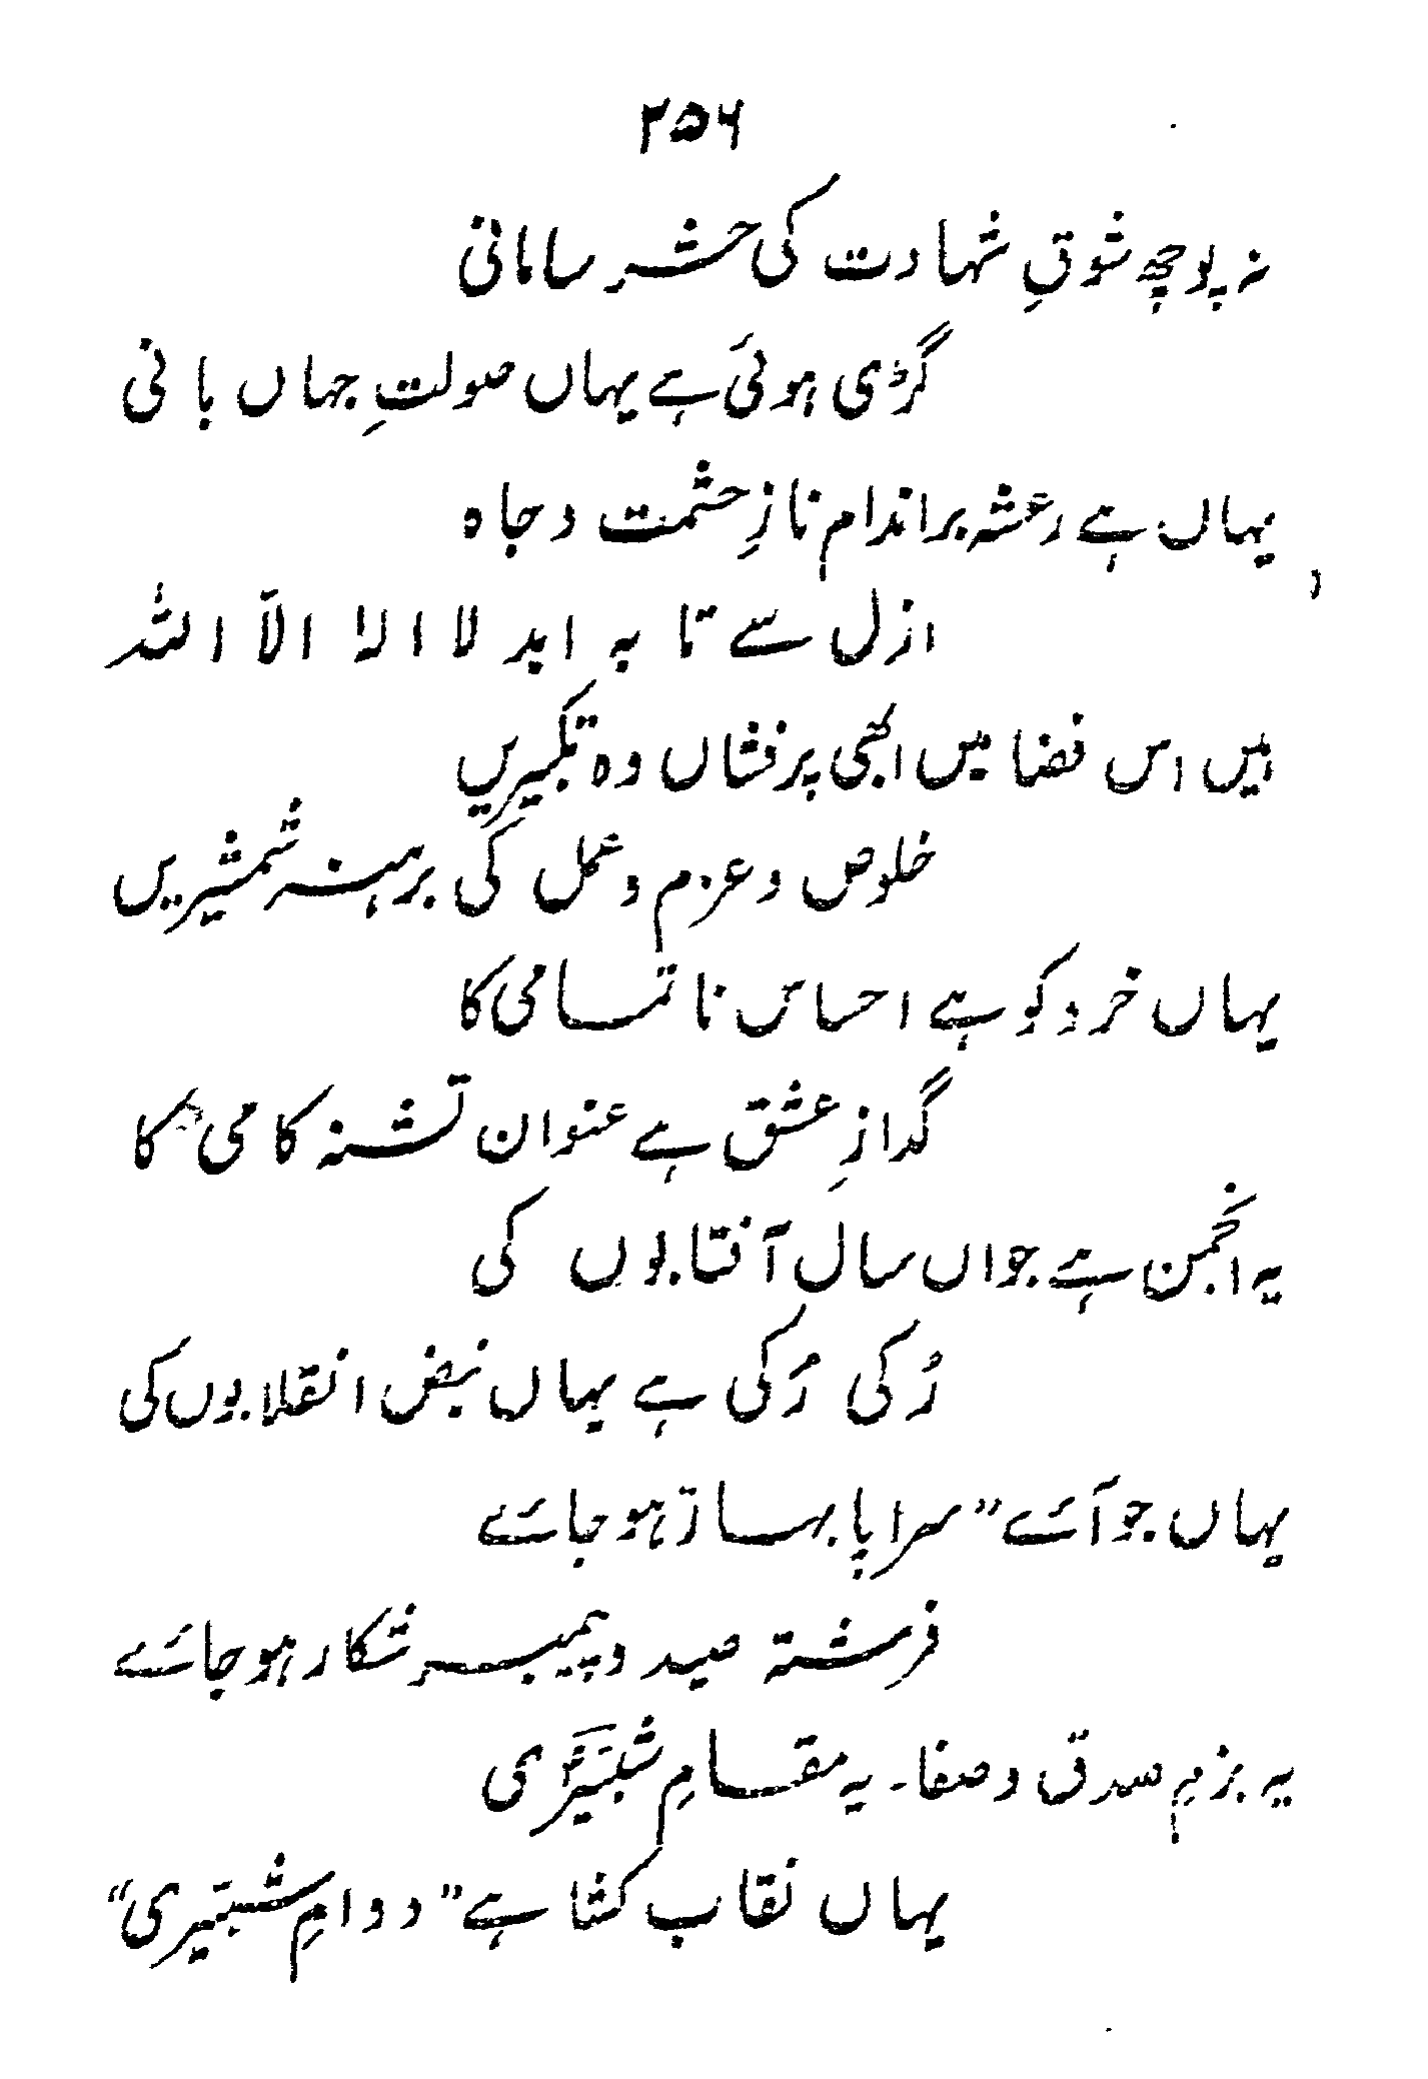 ۲۵۶
نہ پوچھ شوقِ شہادت کی حشر سامانی
گڑی ہوئی ہے یہاں صولتِ جہاں بانی
یہاں ہے رعشہ براندام نازِ حشمت و جاہ
ازل سے تا بہ ابد لا الہٰ الاّ اللہ
ہیں اس فضا میں ابھی پرفشاں وہ تکبیریں
خلوص و عزم و عمل کی برہنہ شمشیریں
یہاں خرد کو ہے احساس ناتمامی کا
گدازِ عشق ہے عنوان تشنہ کامی کا
یہ انجمن ہے جواں سال آفتابوں کی
رُکی رُکی ہے یہاں نبض انقلابوں کی
یہاں جو آئے "سراپا بہار" ہو جائے
فرشتہ صید و پیمبر شکار ہو جائے
یہ بزمِ صدق و صفا۔ یہ مقامِ شبیّری
یہاں نقاب کشا ہے "دوامِ شبیّری"